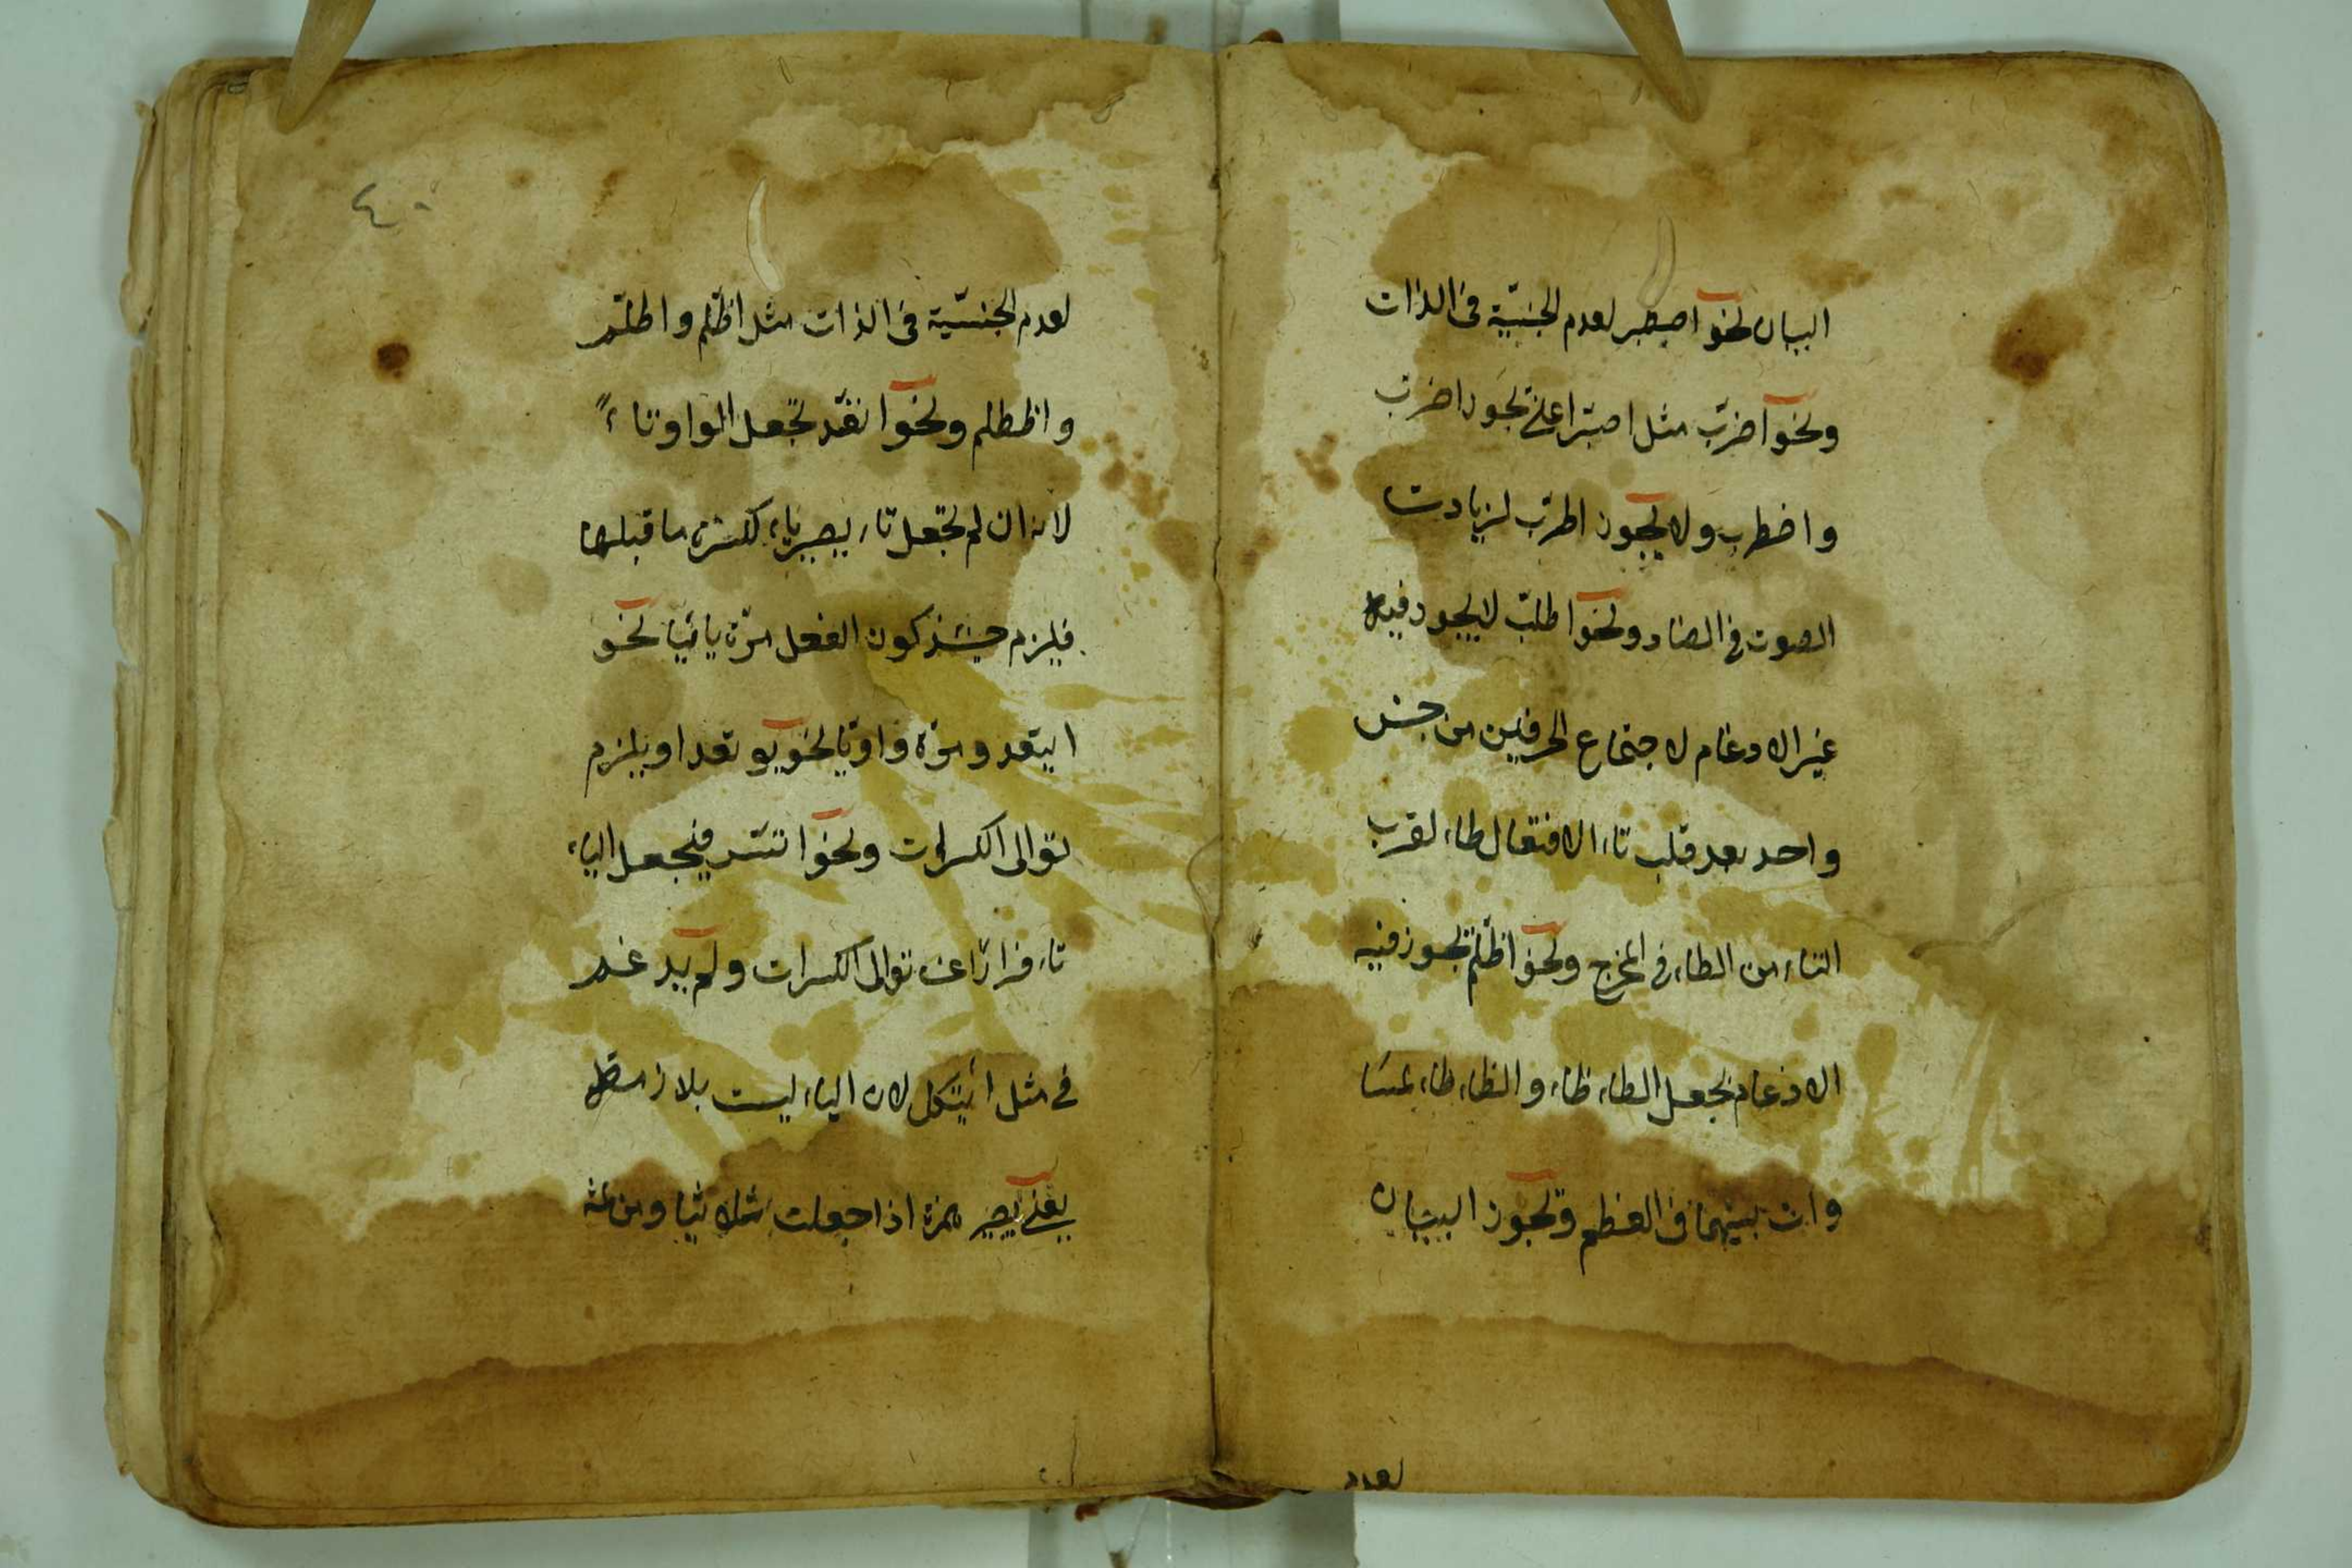 البيان نحو اصطبر لعدم الجنسيّة فى الذات
ونحو اضرب مثل اصبر اعنى يجوز اضرب
واضطرب ولا يجوز اطرب لزيادت
الصوت فى الضاد ونحو اطلب لا يجوز فيه
غير الادغام لاجتماع الحرفين من جنس
واحد بعد قلب تاء الافتعال طاء لقرب
التاء من الطاء فى المخرج ونحو اظلم يجوز فيه
الادغام بجعل الطاء ظاء والظاء طاء لمسا
وات بينهما فى العظم ويجوز البيان
لعدم
٤٠
لعدم الجنسيّة فى الذات مثل اظلم واطلم
واظطلم ونحو اتقد تجعل الواو تاءً
لانه ان لم تجعل تاء يصير ياء لكسرة ما قبلها
فيلزم حينئذ كون الفعل مرّة يائيا نحو
ايتقد ومرّة واويّا نحو يوتقد او يلزم
توالى الكسرات ونحو اتسر فيجعل الياء
تاء فرارًا عن توالى الكسرات ولم يدغم
فى مثل ايتكل لان الياء ليست بلازمة
يعنى يصير همزة اذا جعلت ثلاثيا ومن ثمة